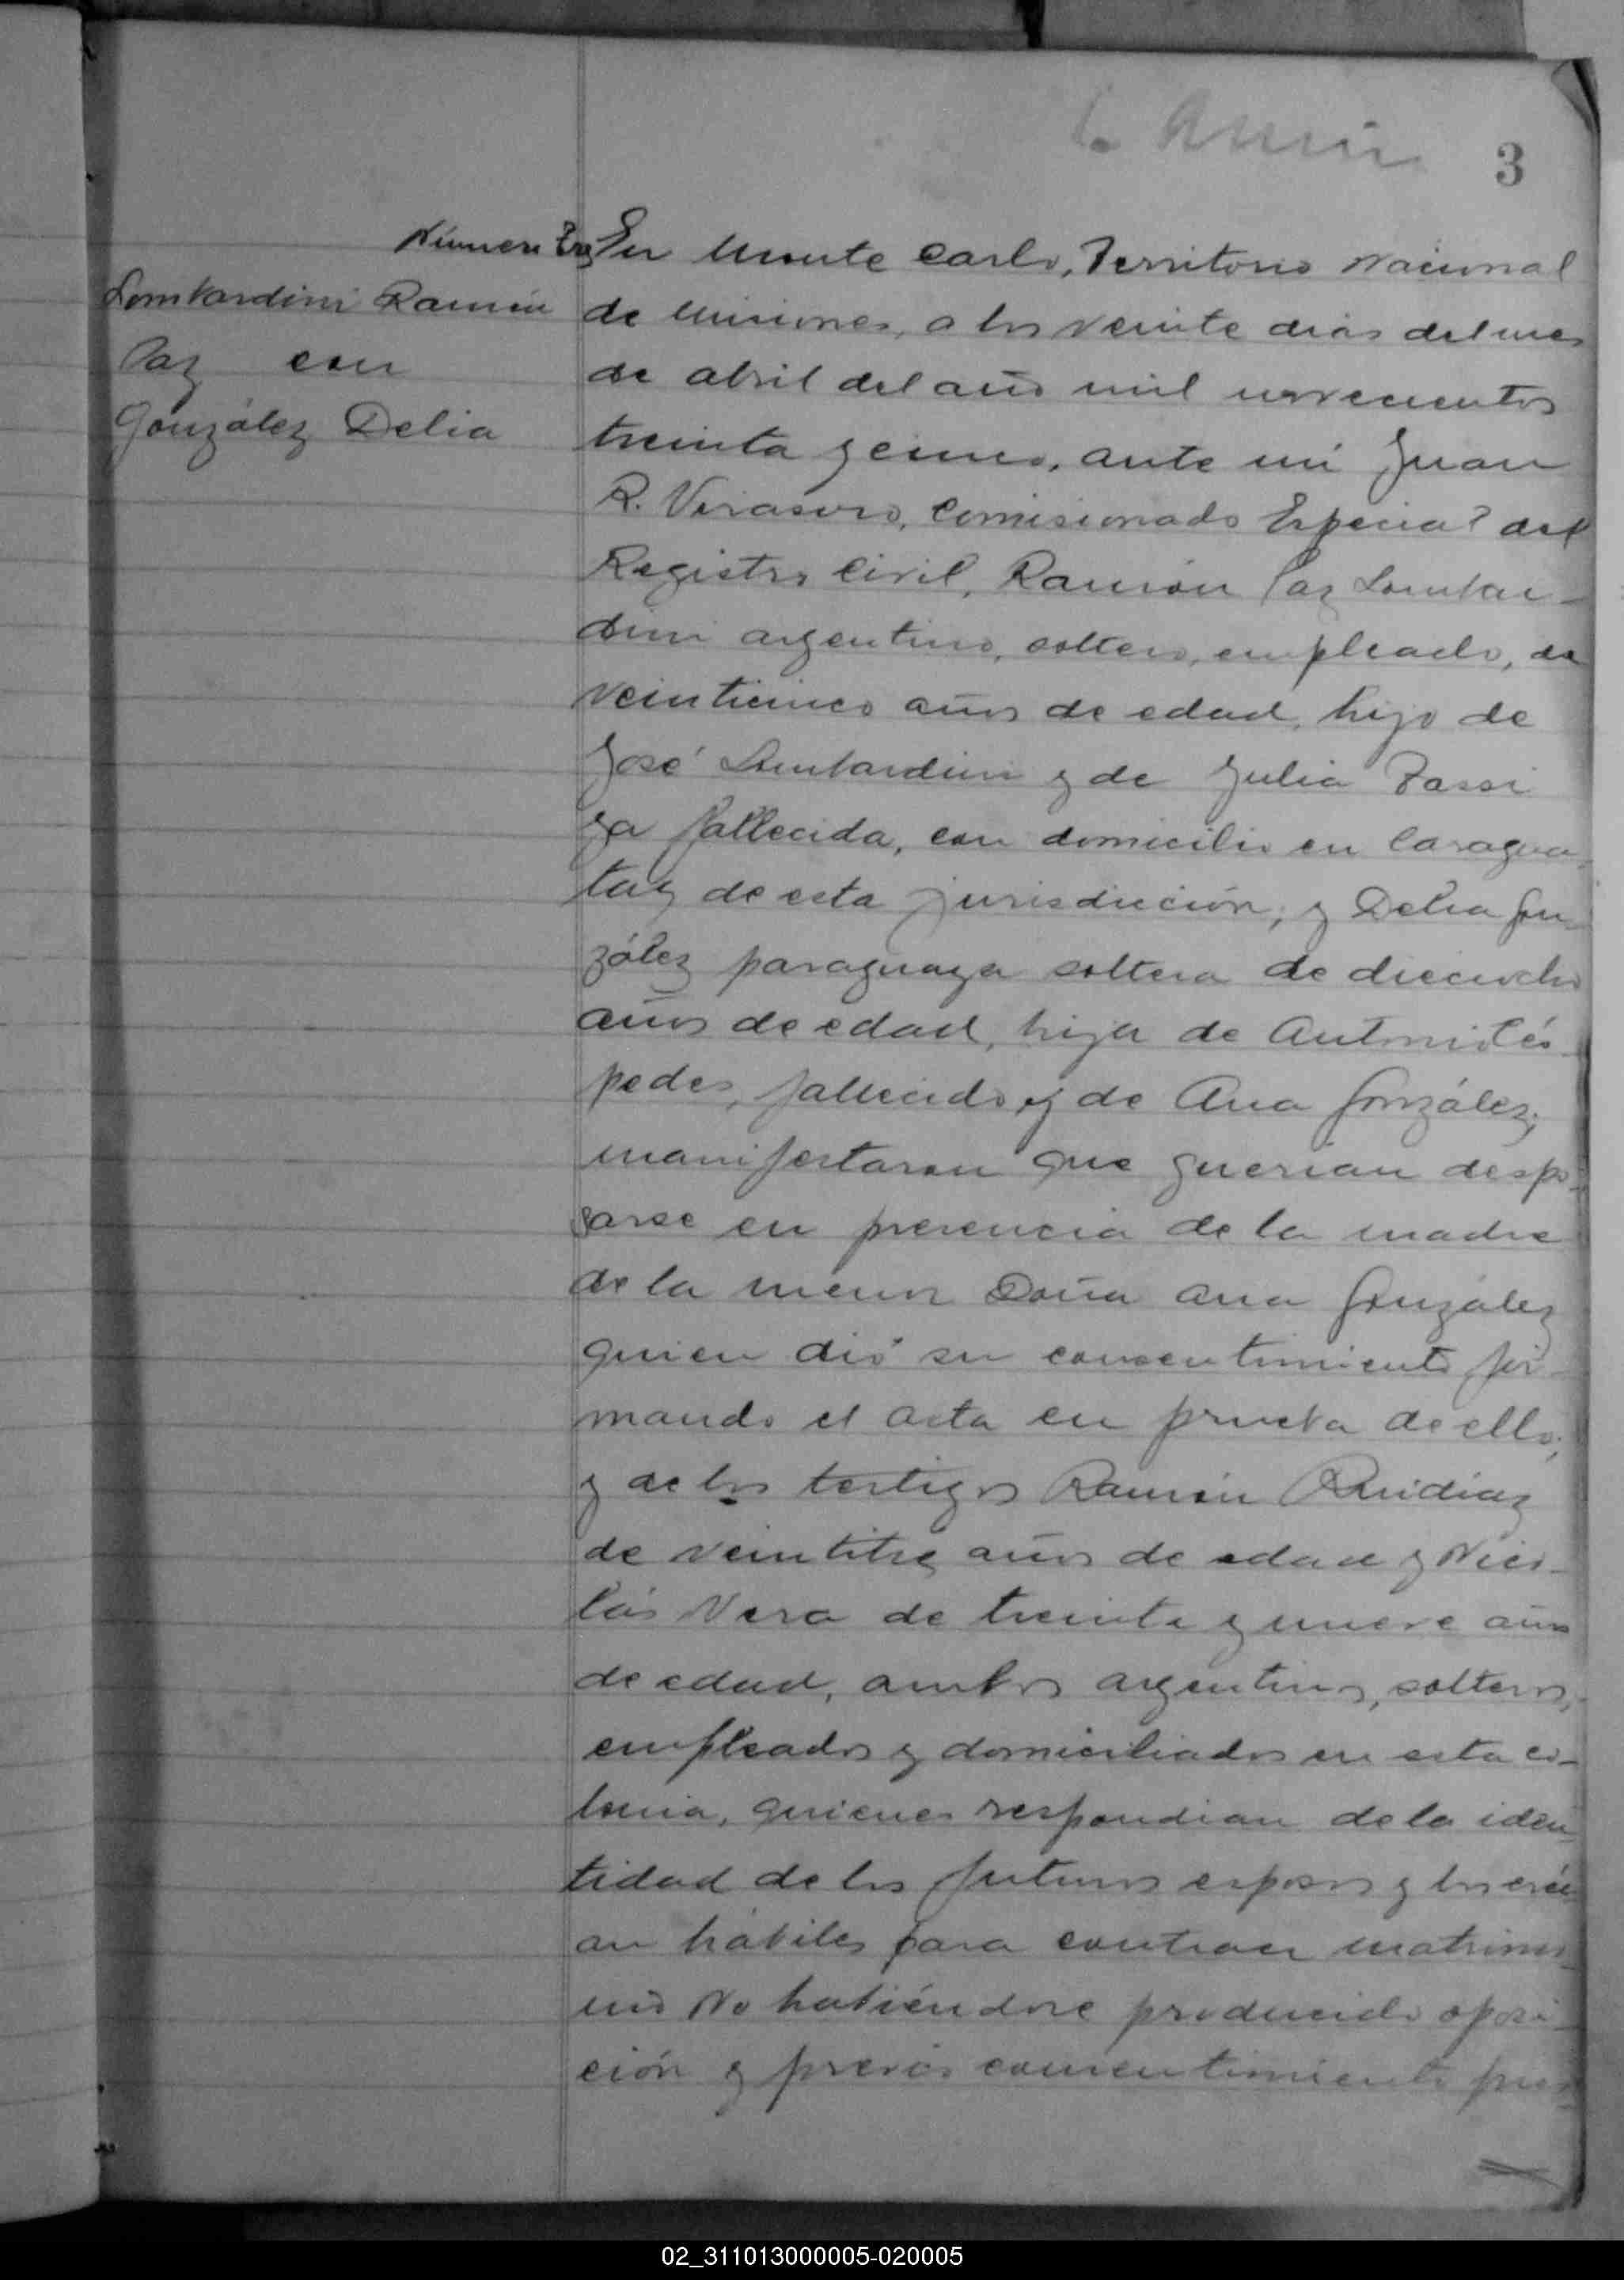 3
Número Tres
Lombardini Ramón
Paz con
González Delia
En Monte Carlo, Territorio Nacional
de Misiones, a los veinte dias del mes
de abril del año mil novecientos
treinta y cinco, ante mi Juan
R. Virasoro, Comisionado Especial del
Registro Civil, Ramón Paz Lombar-
dini argentino, soltero, empleado, de
veinticinco años de edad, hijo de
José Lombardini y de Julia Tassi
ya fallecida, con domicilio en Caragua-
tay de esta jurisdicción; y Delia Gon-
zález paraguaya soltera de dieciocho
años de edad, hija de Antonio Cés-
pedes, fallecido y de Ana González;
manifestaron que querian despo-
sarse en presencia de la madre
de la menor Doña Ana González
quien dió su consentimiento fir-
mando el acta en prueba de ello;
y de los testigos Ramón Ruidiaz
de veintitrés años de edad y Nico-
lás Vera de treinta y nueve años
de edad, ambos argentinos, solteros,
empleados y domiciliados en esta co-
lonia, quienes respondian de la iden-
tidad de los futuros esposos y los creí-
an hábiles para contraer matrimo-
nio No habiéndose producido oposi-
ción y previo consentimiento pres-
02_311013000005-020005